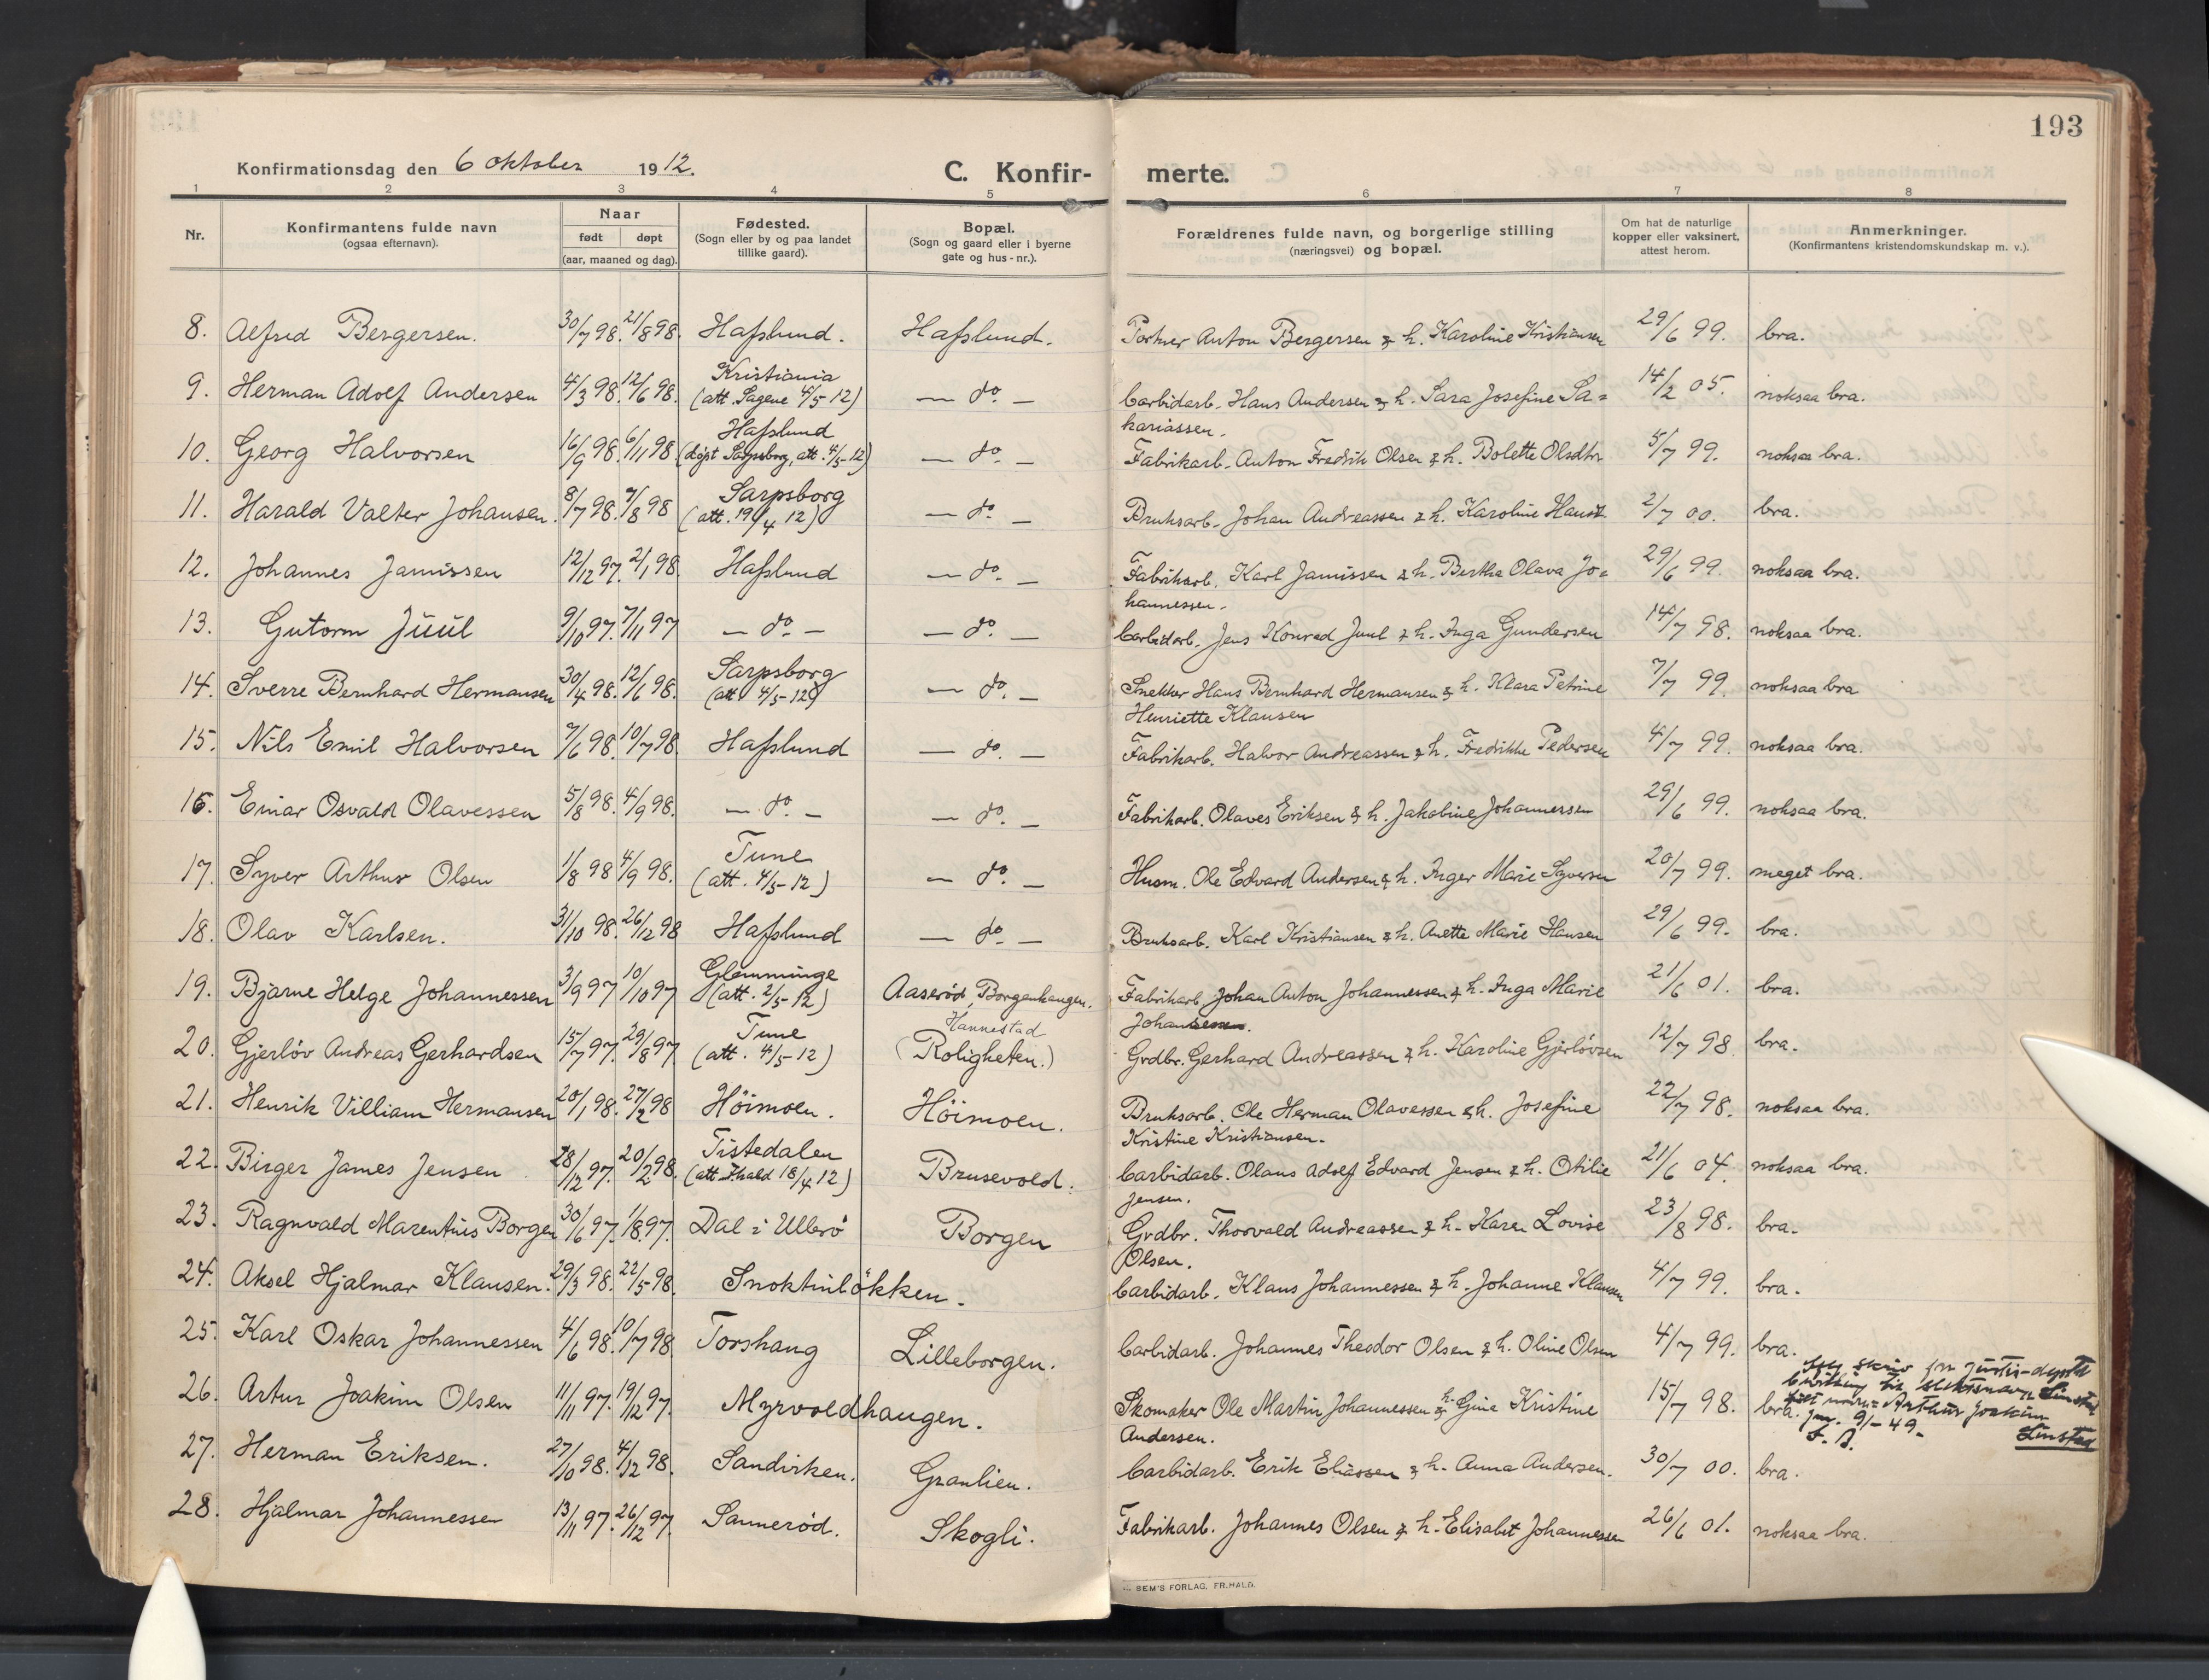 193
Konfirmationsdag den 6 oktober 1912. C. Konfir- merte.
1 2 3 4 5 6 7 8
Nr. Konfirmantens fulde navn (ogsaa efternavn). Naar født døpt (aar, maaned og dag). Fødested. (Sogn eller by og paa landet tillike gaard). Bopæl. (Sogn og gaard eller i byerne gate og hus-nr.). Forældrenes fulde navn, og borgerlige stilling (næringsvei) og bopæl. Om hat de naturlige kopper eller vaksinert, attest herom. Anmerkninger. (Konfirmantens kristendomskundskap m. v.).
8. Alfred Bergersen. 30/7 98. 21/8 98. Hafslund. Hafslund. Portner Anton Bergersen & h. Karoline Kristiansen 29/6 99. bra.
9. Herman Adolf Andersen 4/3 98. 12/6 98. Kristiania (att. Sagene 4/5 12) — do. — Carbidarb. Hans Andersen & h. Sara Josefine Sa=
kariassen. noksaa bra. 14/2 05.
10. Georg Halvorsen 16/9 98. 6/11 98. Hafslund (døpt Sarpsborg, att. 4/5-12) — do. — Fabrikarb. Anton Fredrik Olsen & h. Bolette Olsdtr 5/7 99. noksaa bra.
11. Harald Valter Johansen. 8/7 98. 7/8 98 Sarpsborg (att. 19/4 12) — do. — Bruksarb. Johan Andreassen & h. Karoline 2/7 00. bra.
12. Johannes Jamissen 12/12 97. 2/1 98. Hafslund — do. — Fabrikarb. Karl Jamissen & h. Bertha Olava Jo=
hannessen. 29/6 99. noksaa bra.
13. Gutorm Juul 9/10 97. 7/11 97 — do. — — do. — Carbidarb. Jens Konrad Juul & h. Inga Gundersen 14/7 98. noksaa bra.
14. Sverre Bernhard Hermansen 30/4 98. 12/6 98. Sarpsborg (att. 4/5-12) — do. — Snekker Hans Bernhard Hermansen & h. Klara Petrine
Henriette Klausen 7/7 99. noksaa bra
15. Nils Emil Halvorsen 7/6 98. 10/7 98. Hafslund — do. — Fabrikarb. Halvor Andreassen & h. Fredrikke Pedersen 4/7 99. noksaa bra.
16. Einar Osvald Olavessen 5/8 98. 4/9 98. — do. — — do. — Fabrikarb. Olaves Eriksen & h. Jakobine Johannessen 29/6 99. noksaa bra.
17. Syver Arthur Olsen 1/8 98 4/9 98. Tune (att. 4/5-12) — do. — Husm. Ole Edvard Andersen & h. Inger Marie Syversen 20/7 99. meget bra.
18. Olav Karlsen. 31/10 98. 26/12 98 Hafslund — do. — Bruksarb. Karl Kristiansen & h. Anette Marie Hansen 29/6 99. bra.
19. Bjarne Helge Johannessen 3/9 97 10/10 97 Glemminge (att. 2/5-12) Aaserød, Borgenhaugen. Fabrikarb. Johan Anton Johannessen & h. Inga Marie
Johansen. 21/6 01. bra.
20. Gjerløv Andreas Gerhardsen 15/7 97. 29/8 97 Tune (att. 4/5-12) Hannestad (Roligheten.) Grdbr. Gerhard Andreassen & h. Karoline Gjerløvsen 12/7 98. bra.
21. Henrik Villiam Hermansen 20/1 98. 27/2 98 Höimoen. Höimoen. Bruksarb. Ole Herman Olavessen & h. Josefine
Kristine Kristiansen. 22/7 98. noksaa bra.
22. Birger James Jensen 28/12 97. 20/2 98. Tistedalen (att. Fhald 18/4 12) Brusevold. Carbidarb. Olaus Adolf Edvard Jensen & h. Otilie
Jensen. 21/6 04. noksaa bra.
23. Ragnvald Marentius Borgen 30/6 97. 1/8 97. Dal i Ullerö Borgen Grdbr. Thorvald Andreassen & h. Karen Lovise
Olsen. 23/8 98. bra.
24. Aksel Hjalmar Klausen. 29/3 98. 22/5 98. Snoktinlökken. Carbidarb. Klaus Johannessen & h. Johanne Klausen 4/7 99. bra.
25. Karl Oskar Johannessen 4/6 98. 10/7 98 Torshaug Lilleborgen. Carbidarb. Johannes Theodor Olsen & h. Oline Olsen 4/7 99. bra.
26. Artur Joakim Olsen 11/11 97. 19/12 97. Myrvoldhaugen. Skomaker Ole Martin Johannessen & h. Gine Kristine
Andersen. 15/7 98. bra. skriv fra Justis-dept
bevilling til slektsnavn
Arthur Joakim
9/-49.
27. Herman Eriksen. 27/10 98. 4/12 98. Sandviken. Granlien. Carbidarb. Erik Eliassen & h. Anna Andersen. 30/7 00. bra.
28. Hjalmar Johannessen 13/11 97. 26/12 97. Sannerød. Skogli. Fabrikarb. Johannes Olsen & h. Elisabet Johannessen 26/6 01. noksaa bra.
SEM'S FORLAG, FR.HALD.